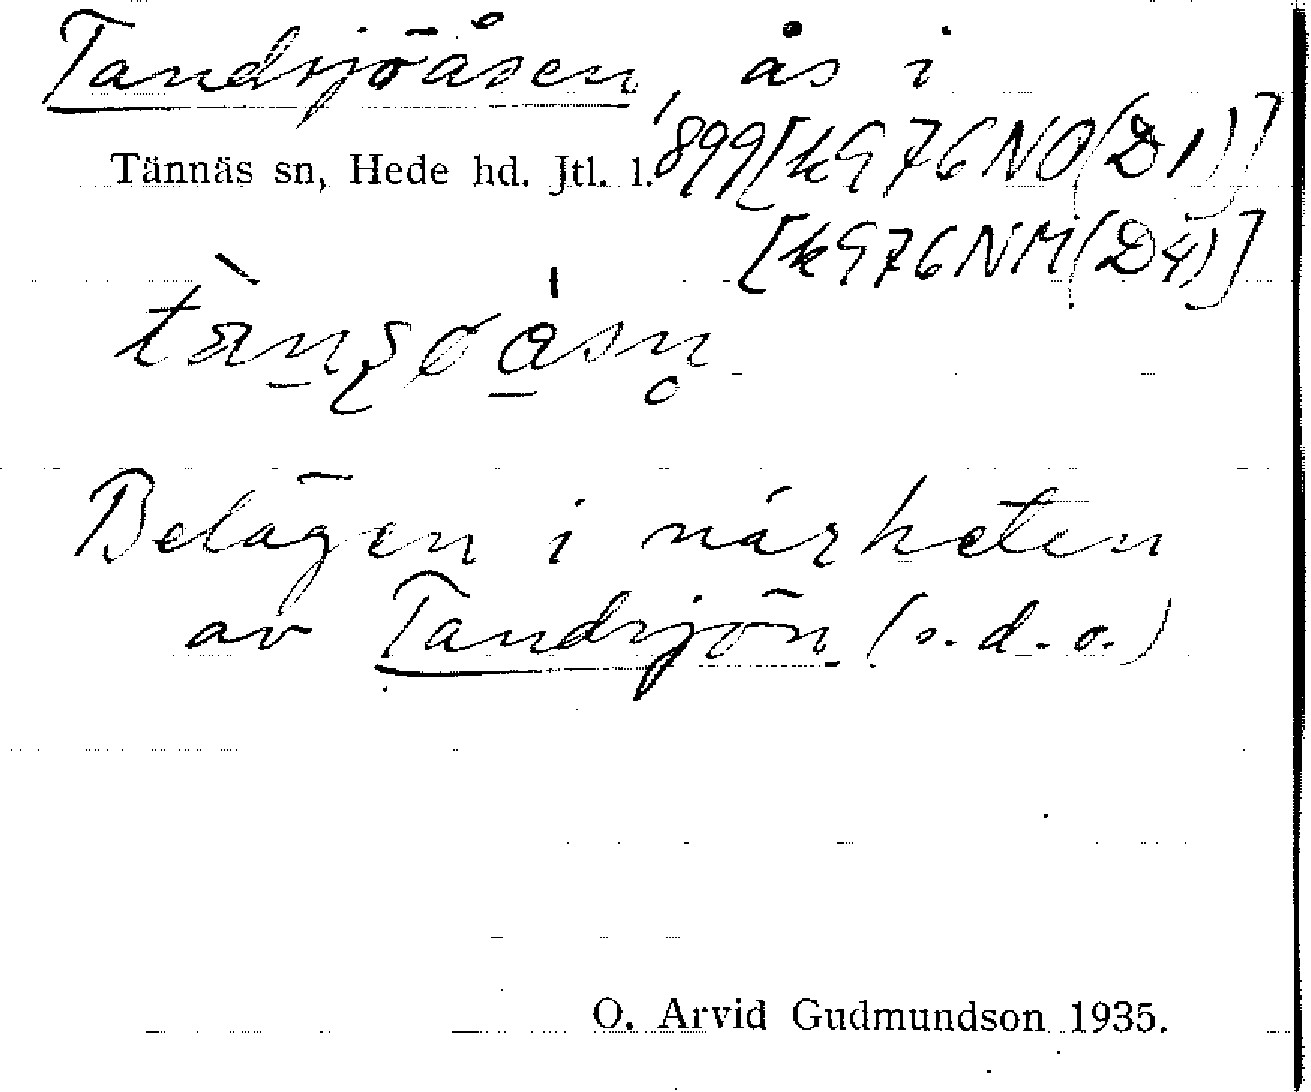 Tandsjöåsen, ås i
Tännäs sn, Hede hd. Jtl. l. '899 [k976NO(D1)]
[k976NM(D4)]
Belägen i närheten
av Tandsjön (s.d.o.)
O. Arvid Gudmundson 1935.